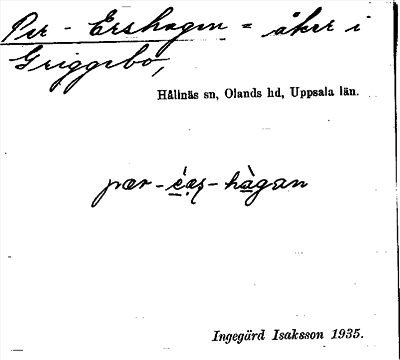 Per-Ershagen = åker i
Griggebo,
Hållnäs sn, Olands hd, Uppsala län.
pær-èaʂ-hàgan
Ingegärd Isaksson 1935.